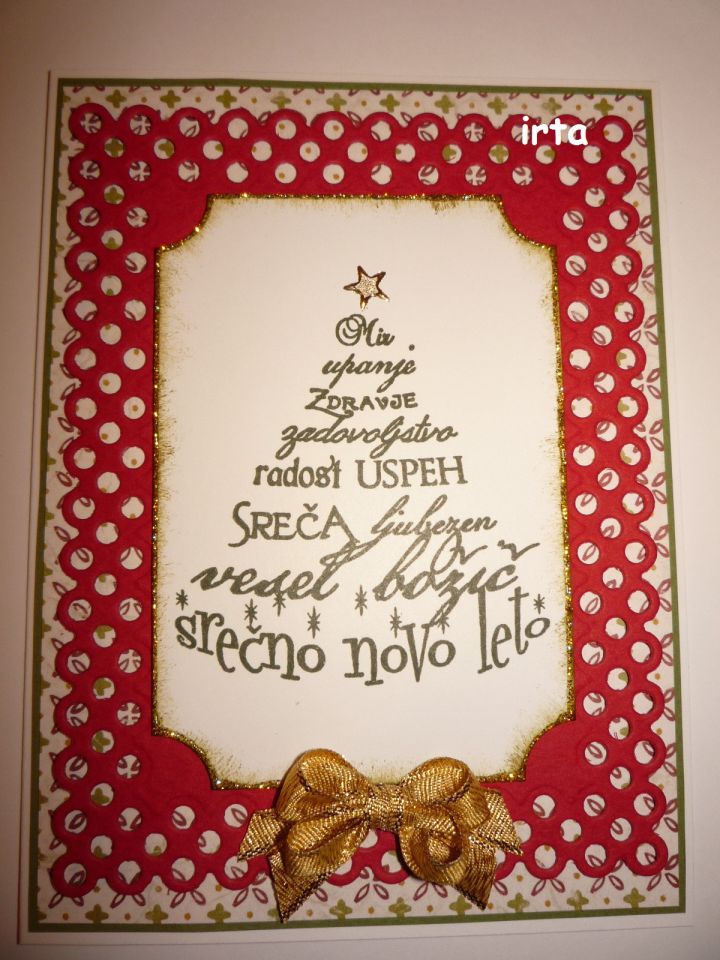 irta
Mir
upanje
ZDRAVJE
zadovoljstvo
radost USPEH
SREČA ljubezen
vesel božič
srečno novo leto